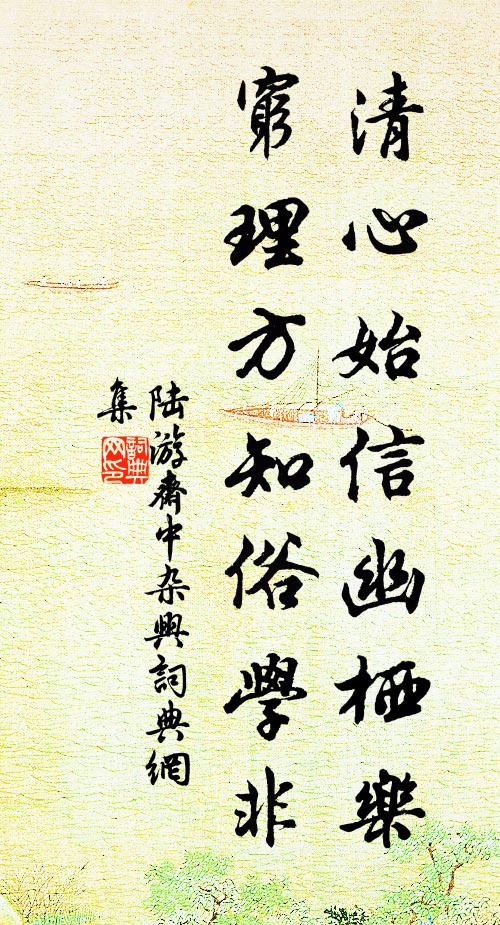 清心始信幽栖樂
窮理方知俗學非
陆游齋中杂興詞典網
集
詞典
网印